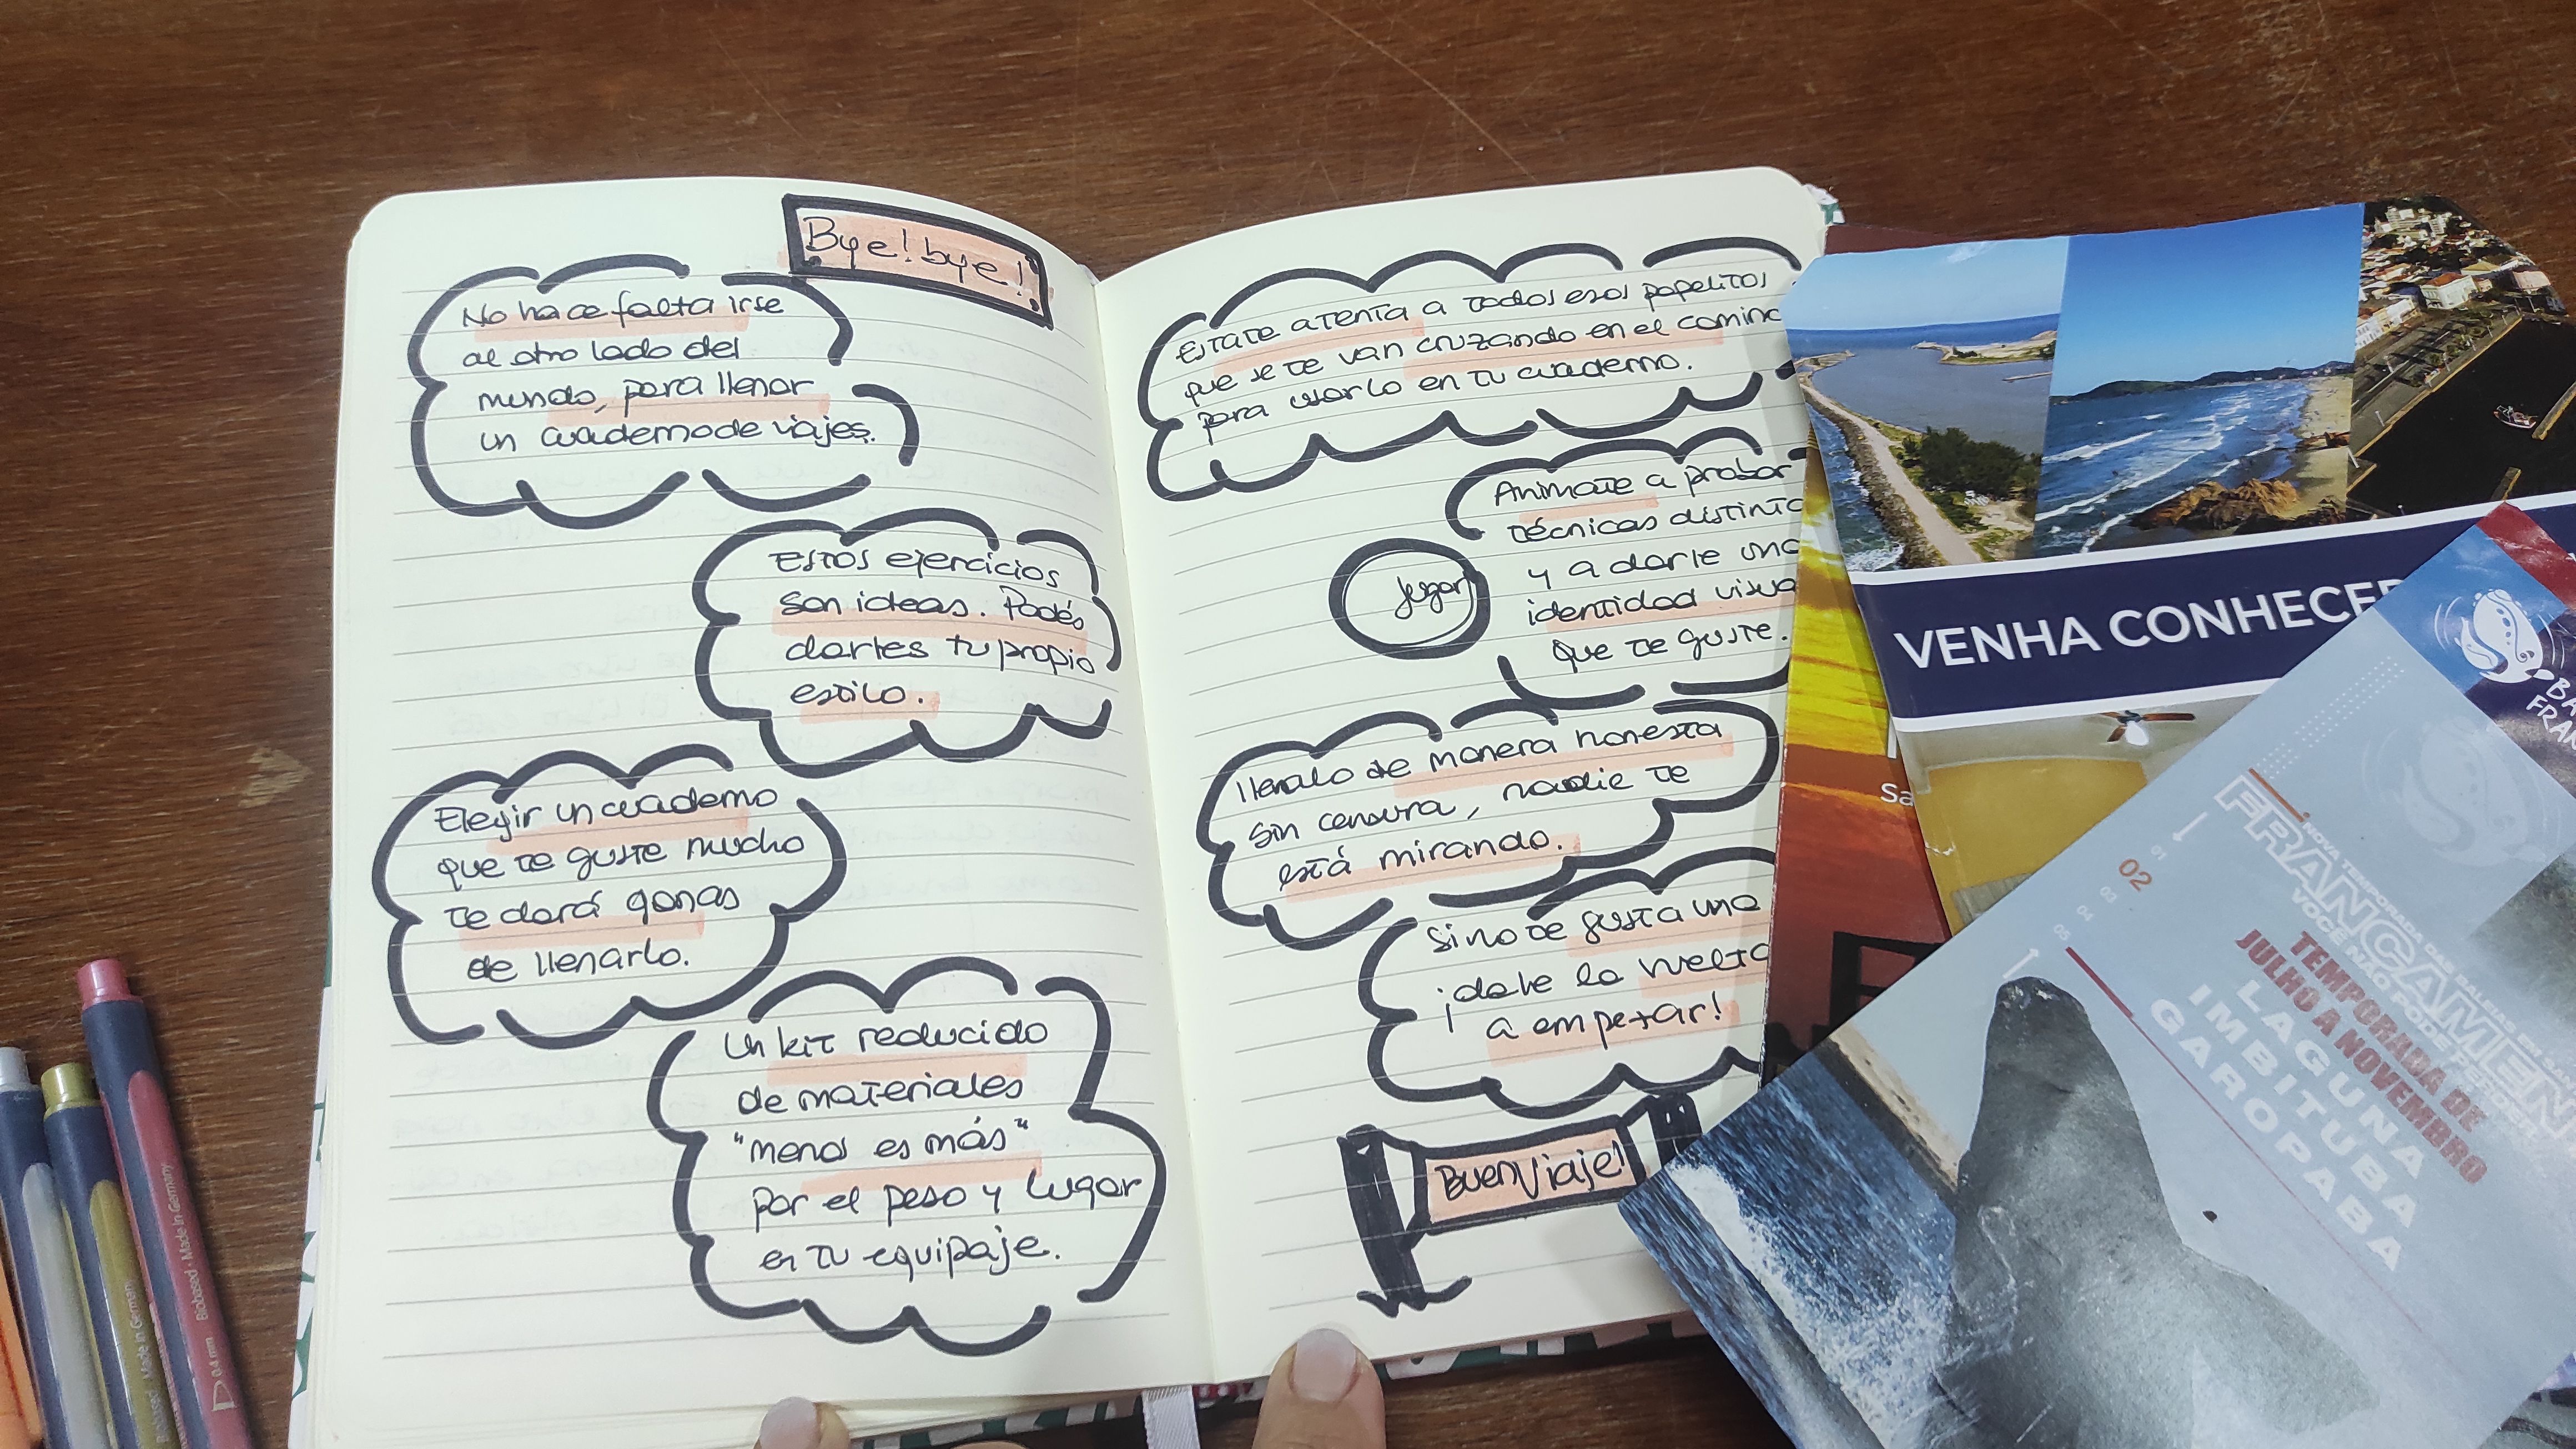 Bye! bye!
No hace falta irse
al otro lado del
mundo, para llenar
un cuaderno de viajes.
Estos ejercicios
son ideas. Podés
darles tu propio
estilo.
Elegir un cuaderno
que te guste mucho
te dará ganas
de llenarlo.
Un kit reducido
de materiales
"menos es más"
por el peso y lugar
en tu equipaje.
Estate atenta a todos esos papelitos
que se te van cruzando en el camino
para usarlo en tu cuaderno.
Animate a probar
técnicas distinta
y a darle una
identidad visua
que te guste.
jugar
llenalo de manera honesta
sin censura, nadie te
está mirando.
Si no te gusta una
¡date la vuelta
a empezar!
Buen Viaje!
VENHA CONHECER
Sa
BA
FRAN
NOVA TEMPORADA DAS BALEIAS EM
FRANCAMEN
VOCÊ NÃO PODE
TEMPORADA DE
JULHO A NOVEMBRO
LAGUNA
IMBITUBA
GAROPABA
01
02
03
04
05
0.4 mm Biobased · Made in Germany
Biobased · Made in German